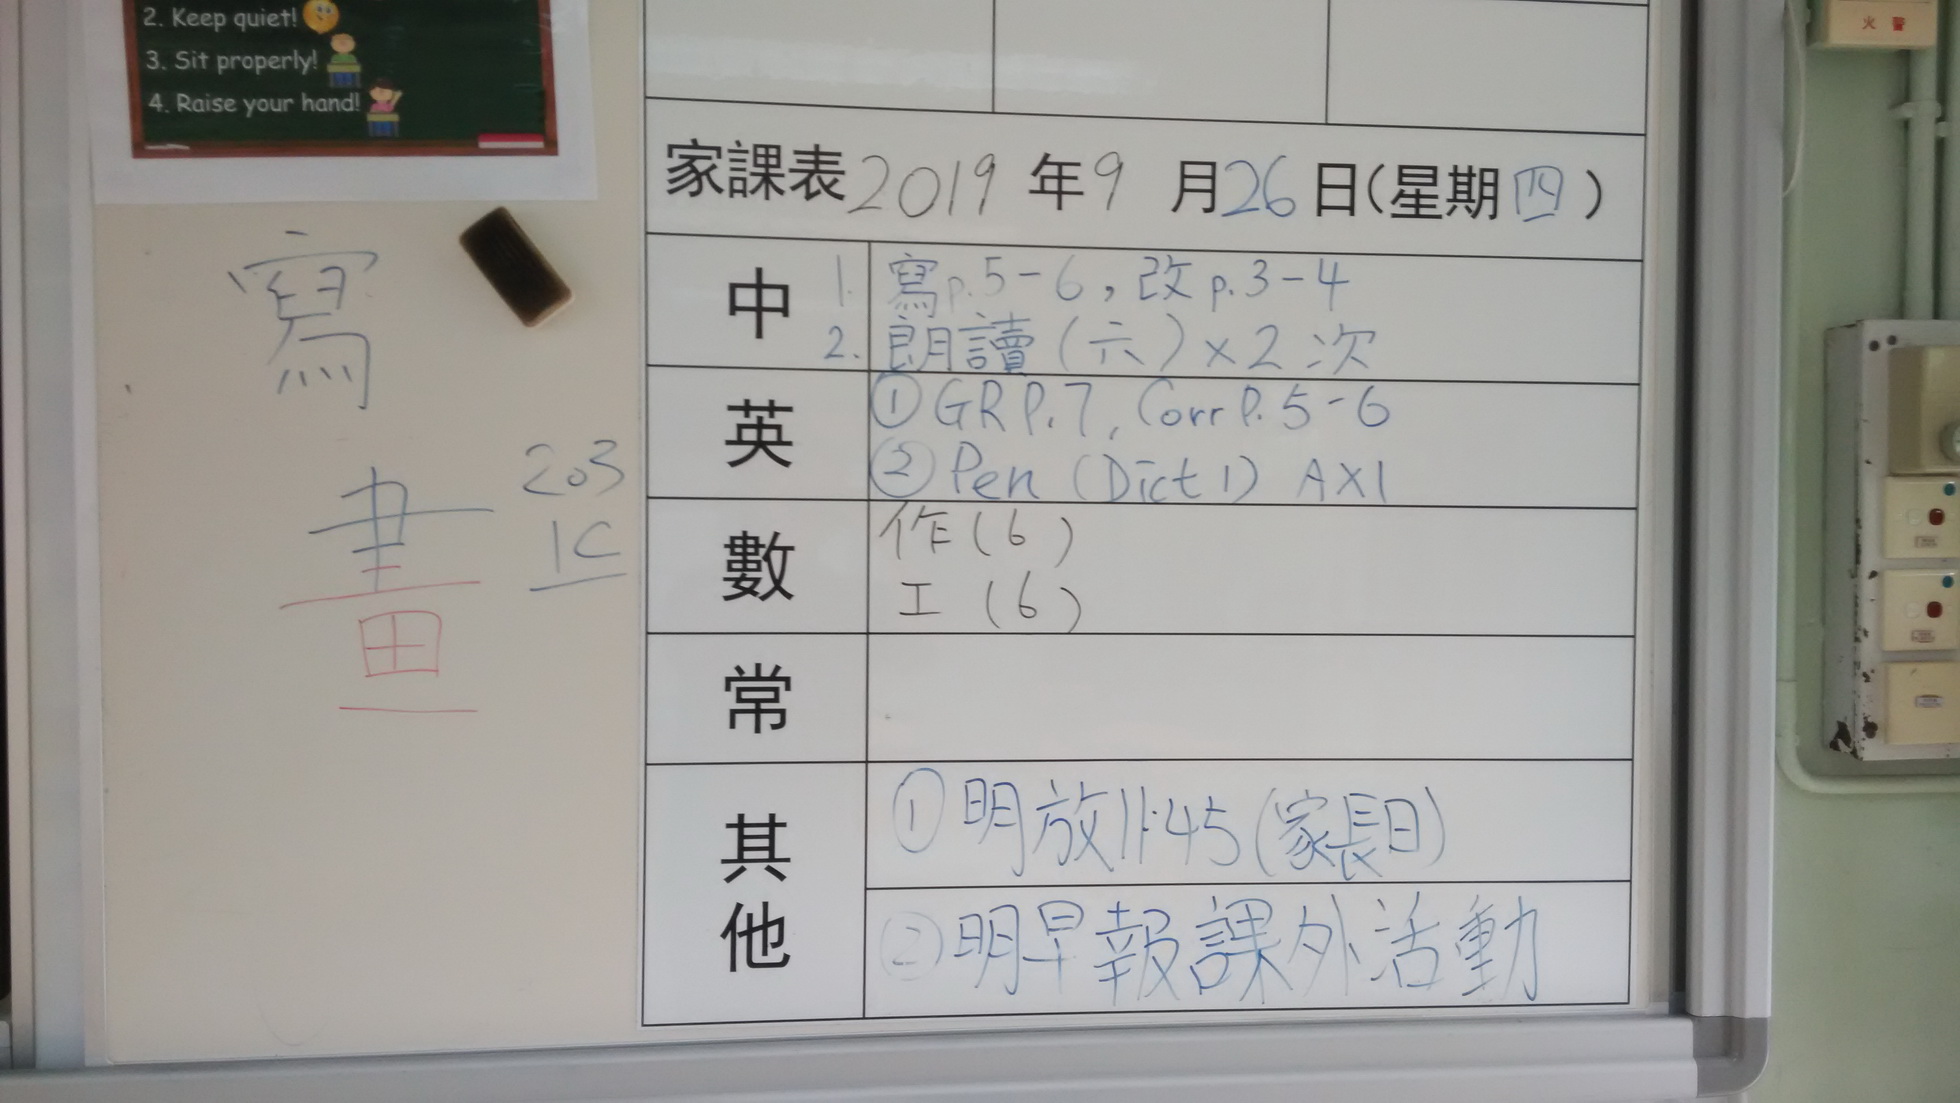 2. Keep quiet!
3. Sit properly!
4. Raise your hand!
家課表 2019 年 9 月 26 日(星期四)
中
1. 寫p.5-6,改p.3-4
2. 朗讀(六)×2次
英
① GR P.7, Corr P.5-6
② Pen (Dict 1) A×1
數
作(6)
工(6)
常
其他
① 明放11:45(家長日)
② 明早報課外活動
寫
畫
203
1C
火警